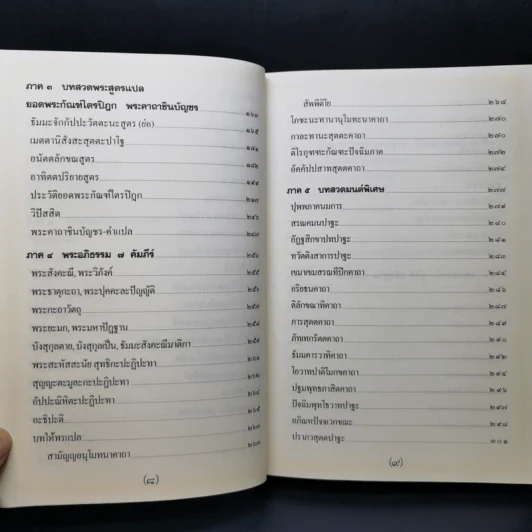 ภาค ๓ บทสวดพระสูตรแปล
ยอดพระกัณฑ์ไตรปิฎก พระคาถาชินบัญชร ๑๖๓
ธัมมะจักกัปปะวัตตะนะสูตร (ย่อ) ๑๖๕
เมตตานิสังสะสุตตะปาโฐ ๑๘๑
อนัตตลักขณสูตร ๑๘๒
อาทิตตปริยายสูตร ๑๙๙
ประวัติยอดพระกัณฑ์ไตรปิฎก ๒๑๗
วิปัสสิต ๒๔๖
พระคาถาชินบัญชร-คำแปล ๒๔๗
ภาค ๔ พระอภิธรรม ๗ คัมภีร์ ๒๕๓
พระสังคะณี, พระวิภังค์ ๒๕๕
พระธาตุกะถา, พระปุคคะละปัญญัติ ๒๕๖
พระกะถาวัตถุ ๒๕๗
พระยะมก, พระมหาปัฏฐาน ๒๕๘
บังสุกุลตาย, บังสุกุลเป็น, ธัมมะสังคะณีมาติกา ๒๕๙
พระสะหัสสะนัย สุทธิกะปะฏิปะทา ๒๖๒
สุญญะตะมูละกะปะฏิปะทา ๒๖๓
อัปปะณิหิตะปะฏิปะทา ๒๖๔
อะธิปะติ ๒๖๕
บทให้พรแปล ๒๖๗
สามัญญอนุโมทนาคาถา ๒๖๗
(๘)
สัพพีติโย ๒๖๘
โภชะนะทานานุโมทะนาคาถา ๒๗๐
กาละทานะสุตตะคาถา ๒๗๑
ติโรกุฑฑะกัณฑะปัจฉิมภาค ๒๗๒
อัคคัปปสาทสุตตคาถา ๒๗๔
ภาค ๕ บทสวดมนต์พิเศษ ๒๗๗
ปุพพภาคนมการ ๒๗๙
สรณคมนปาฐะ ๒๘๐
อัฏฐสิกขาปทปาฐะ ๒๘๑
ทวัตติงสาการปาฐะ ๒๘๓
เขมาเขมสรณทีปิกคาถา ๒๘๔
อริยธนคาถา ๒๘๖
ติลักขณาทิคาถา ๒๘๗
ภารสุตตคาถา ๒๘๙
ภัทเทกรัตตคาถา ๒๙๐
ธัมมคารวาทิคาถา ๒๙๒
โอวาทปาติโมกขคาถา ๒๙๔
ปฐมพุทธภาสิตคาถา ๒๙๖
ปัจฉิมพุทโธวาทปาฐะ ๒๙๗
อภิณหปัจจเวกขณะ ๒๙๘
ปราภวสุตตปาฐะ ๓๐๑
(๙)